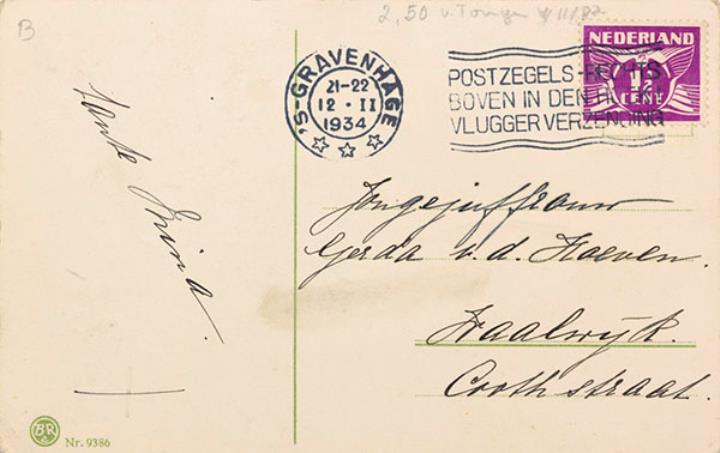 B
2,50
'S-GRAVENHAGE
21-22
12 · II
1934
POSTZEGELS-RECHTS
BOVEN IN DEN HOEK
VLUGGER VERZENDING
NEDERLAND
1½
CENT
Tante Mina.
Jongejuffrouw
Gerda v. d. Hoeven.
Waalwijk.
Crothstraat.
BR
Nr. 9386